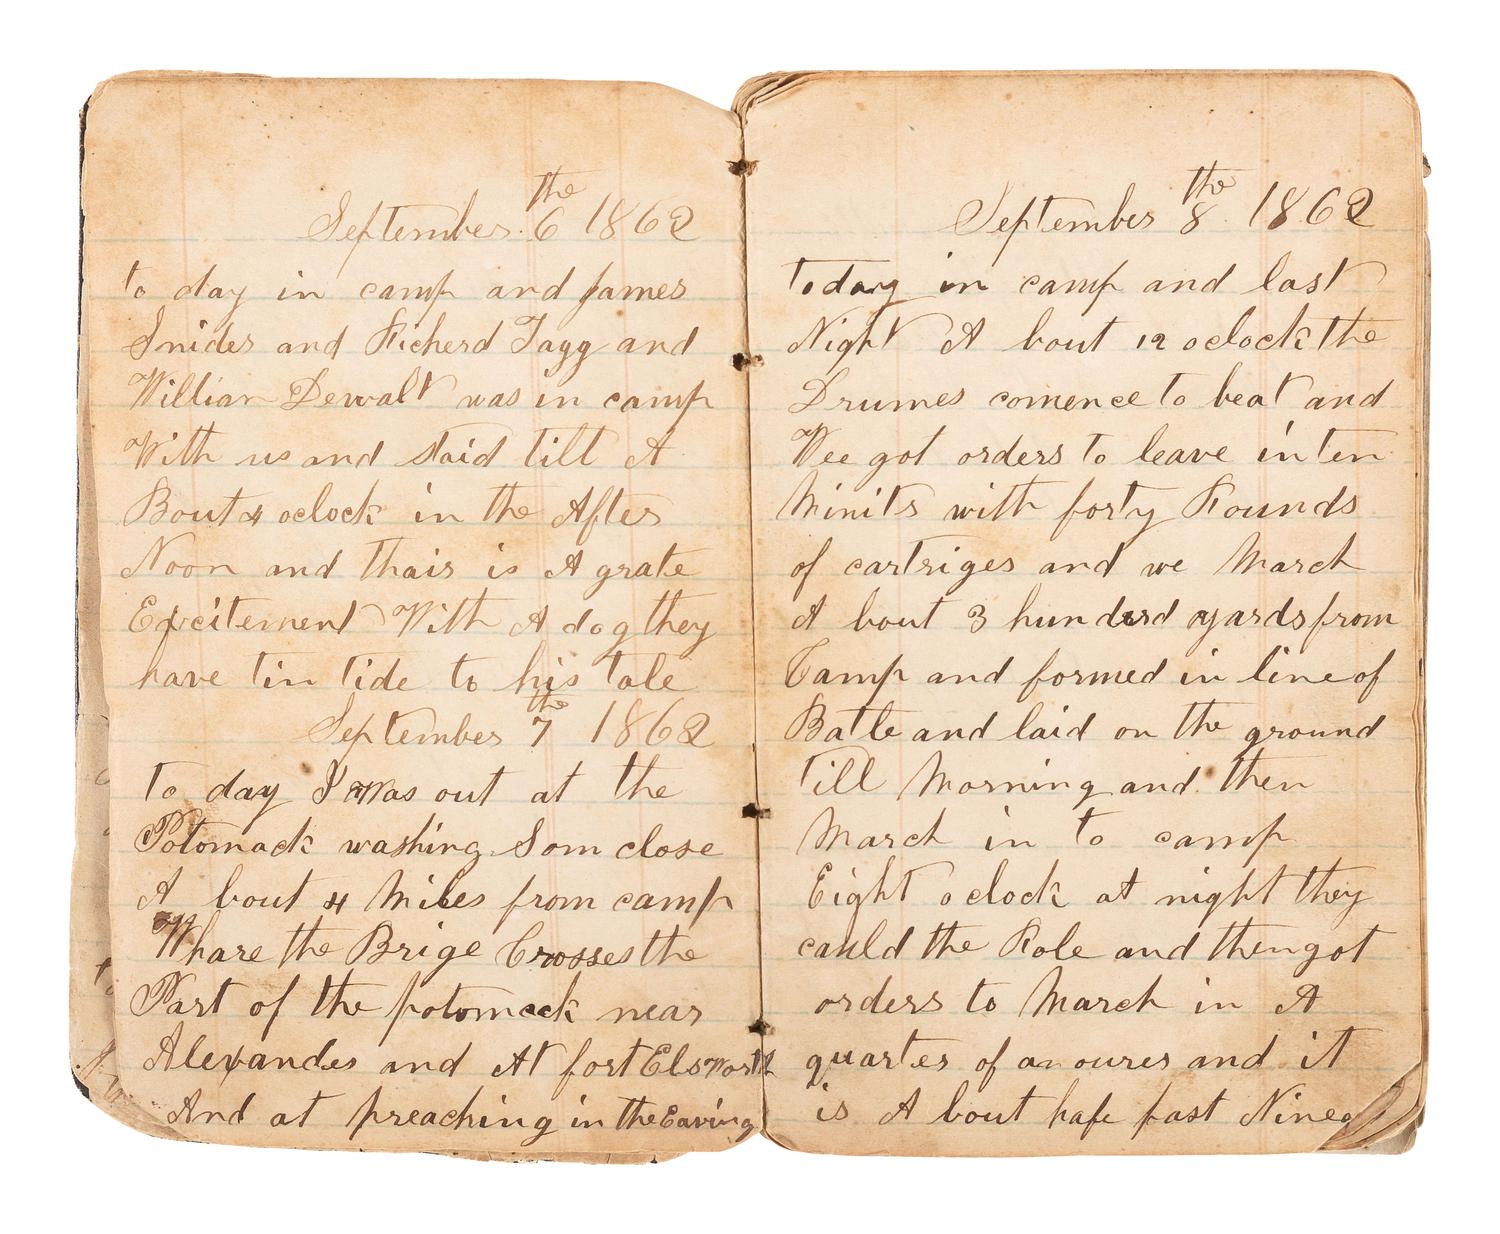 September 6the 1862
to day in camp and James
Snider and Richerd Tagg and
William Dewalt was in camp
With us and Staid till A
Bout 4 oclock in the After
Noon and thair is A grate
Excitement With A dog they
have tin tide to his tale
September 7the 1862
to day I Was out at the
Potomack washing Som close
A bout 4 Miles from camp
Whare the Brige Crosses the
Part of the potomack near
Alexander and At fort Elsworth
And at preaching in the Eaving
September 8the 1862
today in camp and last
Night A bout 12 oclock the
Drumes comence to beat and
Wee got orders to leave in ten
Minits with forty Rounds
of cartriges and we March
A bout 3 hunderd yards from
Camp and formed in line of
Batle and laid on the ground
till Morning and then
March in to camp
Eight oclock at night they
cauld the Role and then got
orders to March in A
quarter of an oure and it
is A bout hafe past Nine